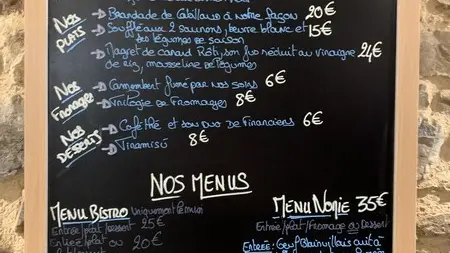 Nos
Plats
Brandade de Cabillaud à notre façon 20€
Soufflé aux 2 saumons, beurre blanc et 15€
ses légumes de saison
Magret de canard Rôti, son jus réduit au vinaigre 24€
de riz, mousseline de légumes
Nos
Fromages
Camembert fumé par nos soins 6€
Trilogie de Fromages 8€
Nos
Desserts
Café/thé et son duo de Financiers 6€
Tiramisù 8€
Nos Menus
Menu Bistro Uniquement le midi
Entrée/plat/dessert 25€
Entrée/plat ou 20€
Menu 35€
Entrée/plat/Fromage ou Dessert
Entrée: Oeuf